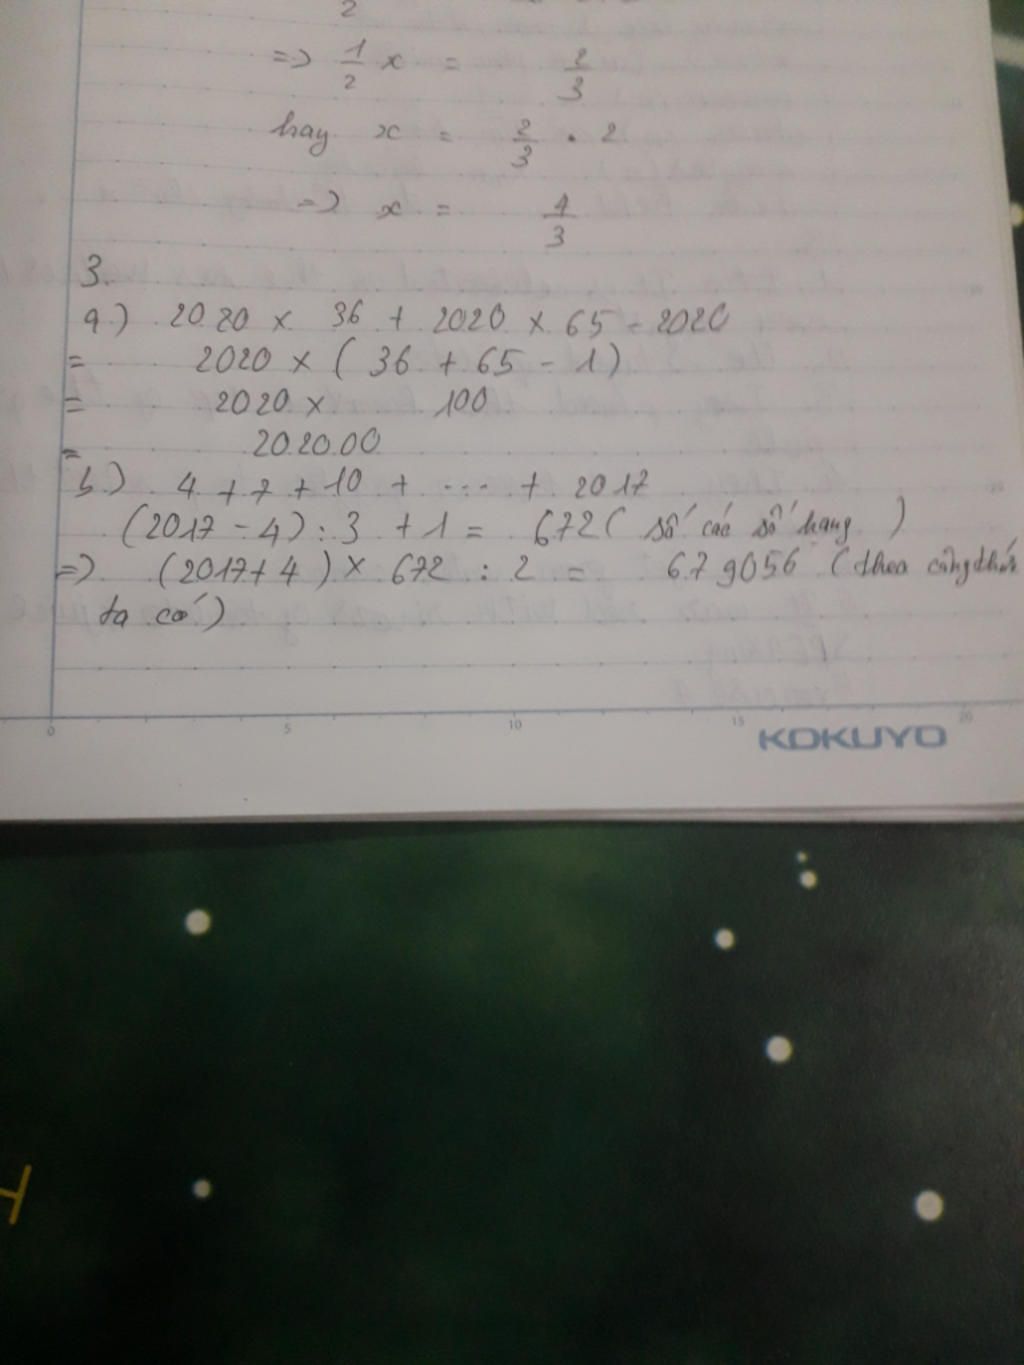 2
=> 1/2 x = 2/3
hay x = 2/3 . 2
=> x = 4/3
3.
a.) 2020 x 36 + 2020 x 65 - 2020
= 2020 x ( 36 + 65 - 1 )
= 2020 x 100
= 202000
b.) 4 + 7 + 10 + ... + 2017
(2017 - 4) : 3 + 1 = 672 ( số các số hạng )
=> (2017 + 4 ) x 672 : 2 = 679056 ( theo công thức
ta có )
0 5 10 15 20
KOKUYO